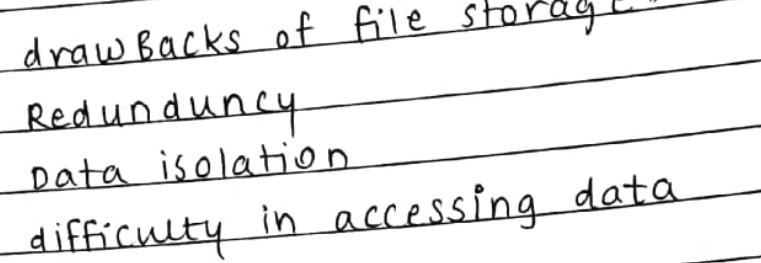 drawBacks of file storage
Redunduncy
Data isolation
difficulty in accessing data